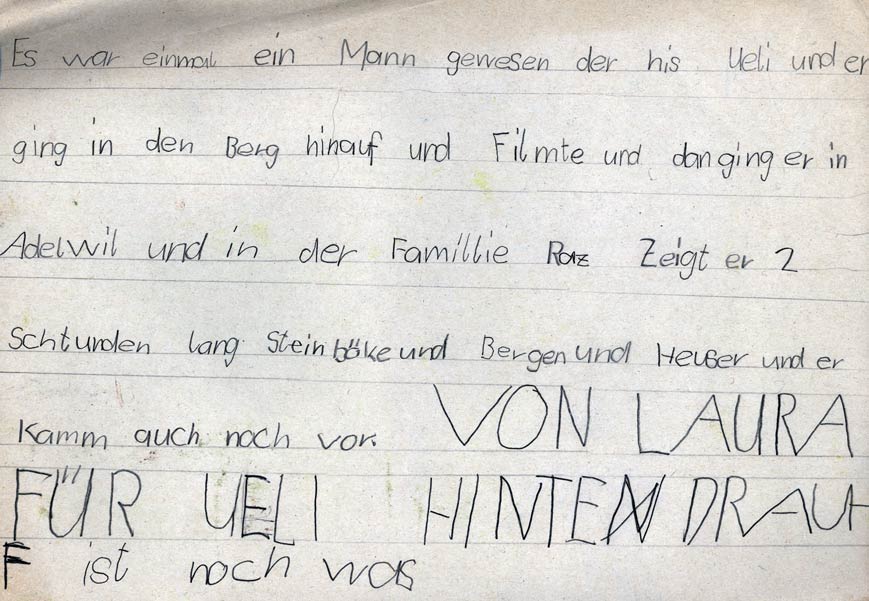 Es war einmal ein Mann gewesen der his Ueli und er
ging in den Berg hinauf und Filmte und dan ging er in
Adelwil und in der Famillie Raz Zeigt er 2
Schtunden lang Steinböke und Bergen und Heußer und er
Kamm auch noch vor. VON LAURA
FÜR UELI HINTEN DRAUF
F ist noch was